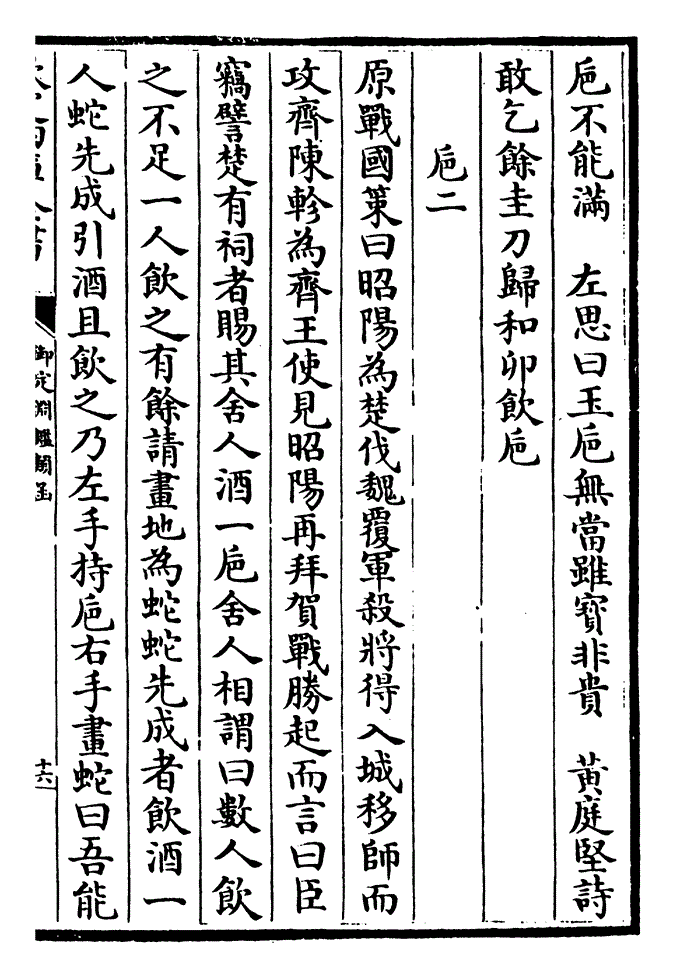 巵不能滿　左思曰玉巵無當雖寳非貴　黃庭堅詩
敢乞餘圭刀歸和卯飲巵
巵二
原戰國策曰昭陽為楚伐魏覆軍殺將得入城移師而
攻齊陳軫為齊王使見昭陽再拜賀戰勝起而言曰臣
竊譬楚有祠者賜其舍人酒一巵舍人相謂曰數人飲
之不足一人飲之有餘請畫地為蛇蛇先成者飲酒一
人蛇先成引酒且飲之乃左手持巵右手畫蛇曰吾能
御定淵鑑類函
十六